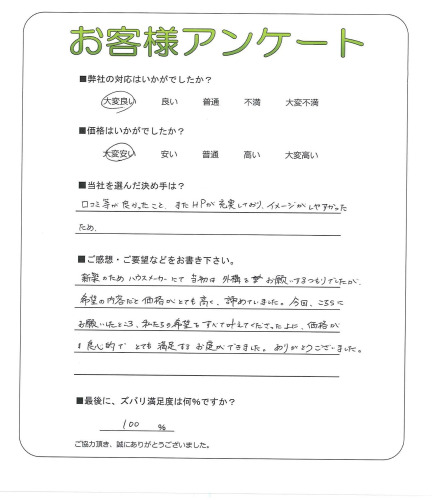 お客様アンケート
■弊社の対応はいかがでしたか？
大変良い 良い 普通 不満 大変不満
■価格はいかがでしたか？
大変安い 安い 普通 高い 大変高い
■当社を選んだ決め手は？
口コミ等が良かったこと、またHPが充実しており、イメージがしやすかった
ため、
■ご感想・ご要望などをお書き下さい。
新築のためハウスメーカーにて当初は外構をお願いするつもりでしたが、
希望の内容だと価格がとても高く、諦めていました。今回、こちらに
お願いしたところ、私たちの希望をすべて叶えてくださった上に、価格が
良心的でとても満足するお庭ができました。ありがとうございました。
■最後に、ズバリ満足度は何％ですか？
100 ％
ご協力頂き、誠にありがとうございました。